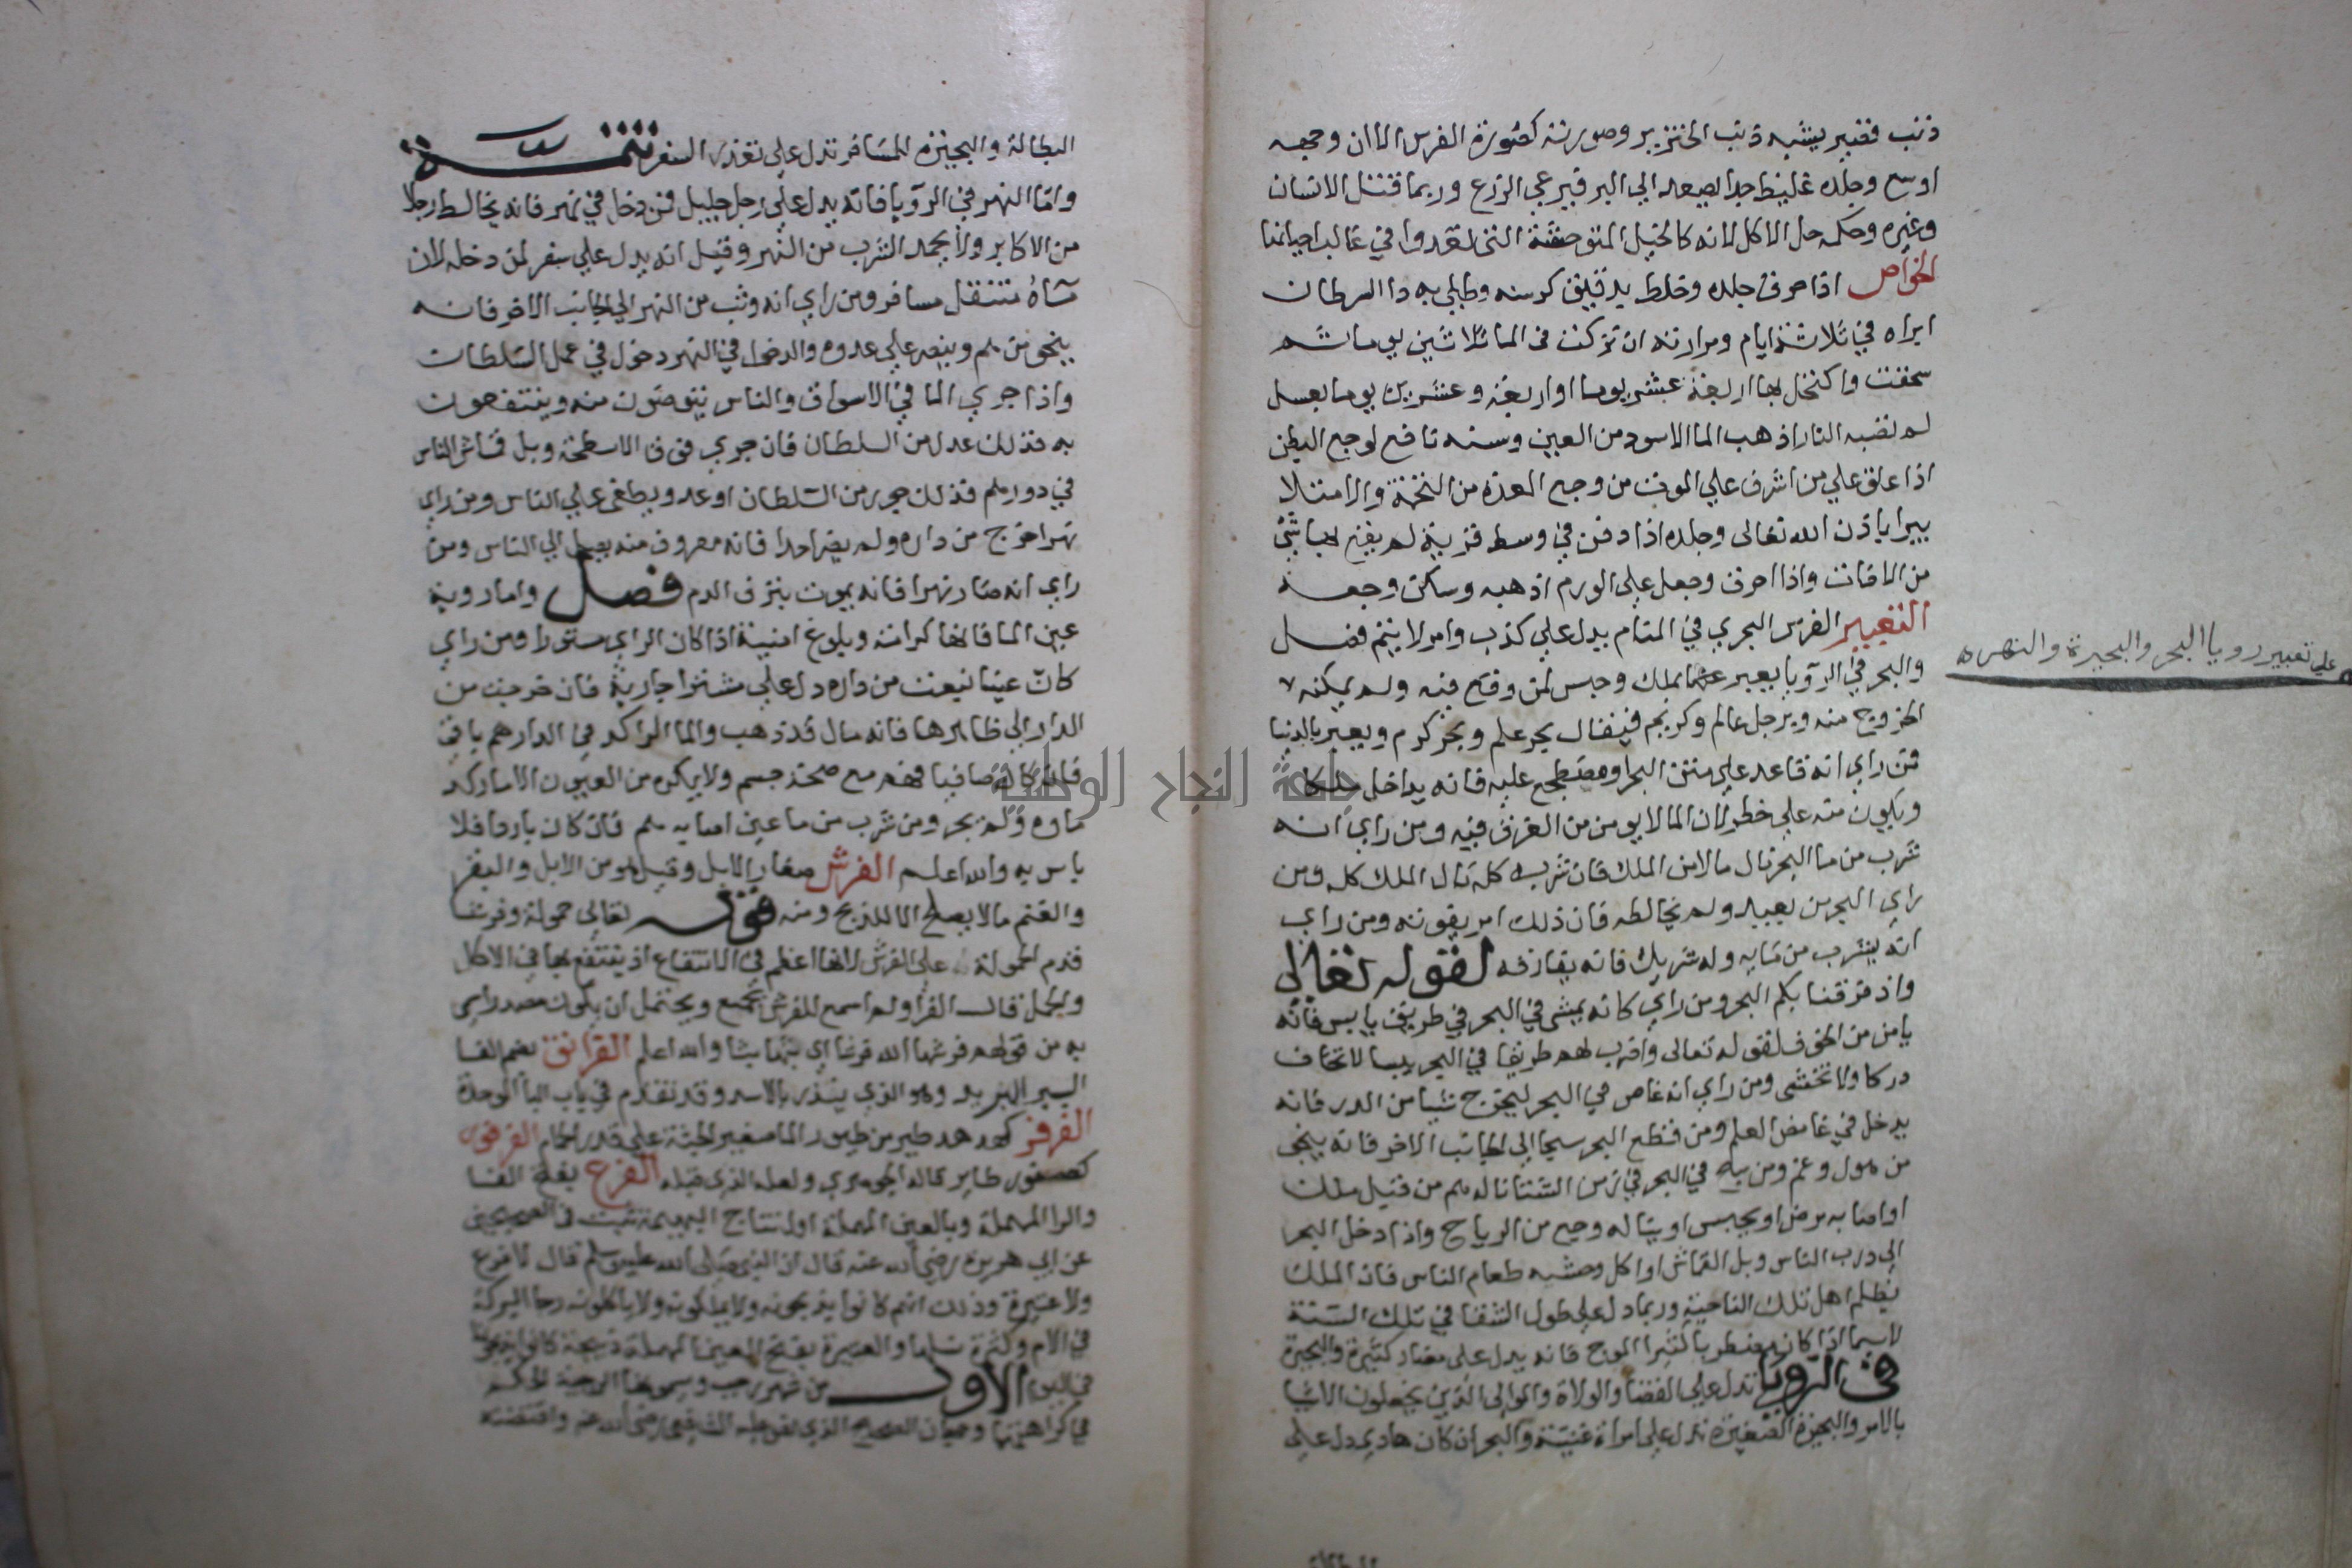 ذنب قصير يشبه ذنب الخنزير وصورته كصورة الفرس الا ان وجهه
اوسع وجلده غليظ جدا يصعد الي البر فيرعي الزرع وربما قتل الانسان
وغيره وحكمه حل الاكل لانه كالخيل المتوحشة التي تعدوا في غالب احيانها
الخواص اذا حرق جلده وخلط بدقيق كرسنه وطلي به دا السرطان
ابراه في ثلاثة ايام ومرارته ان تركت في الما ثلاثين يوما ثم
سحقت واكتحل بها اربعة عشر يوما او اربعة وعشرين يوما بعسل
لم تصبه النار اذهب الما الاسود من العين وسنه نافع لوجع البطن
اذا علق علي من اشرف علي الموت من وجع المعدة من التخمة والامتلا
يبرا باذن الله تعالى وجلده اذا دفن في وسط قرية لم يقع بها شي
من الافات واذا احرق وجعل علي الورم اذهبه وسكن وجعه
التعبير الفرس البحري في المنام يدل علي كذب وامر لا يتم فصل
علي تعبير رويا البحر والبحيرة والنهر
والبحر في الرويا يعبر بملك وحبس لمن وقع فيه ولم يمكنه
الخروج منه وبرجل عالم وكريم فيقال بحر علم وبحر كرم ويعبر بالدنيا
فمن راي انه قاعد علي متن البحر او مضطجع عليه فانه يداخل ملكا
ويكون منه علي خطر لان الما لا يومن من الغرق فيه ومن راي انه
شرب من ما البحر نال مالا من الملك فان شربه كله نال الملك كله ومن
راي البحر من بعيد ولم يخالطه فان ذلك امر يفوته ومن راي
انه يشرب من مايه وله شريك فانه يفارقه لقوله تعالى
واذ فرقنا بكم البحر ومن راي كانه يمشي في البحر في طريق يابس فانه
يامن من الخوف لقوله تعالى واضرب لهم طريقا في البحر يبسا لا تخاف
دركا ولا تخشى ومن راي انه غاص في البحر ليخرج شيا من الدر فانه
يدخل في غامض العلم ومن قطع البحر سبحا الي الجانب الاخر فانه ينجي
من هول وغم ومن سبح في البحر في زمن الشتا ناله هم من قبل ملك
او اصابه مرض او يحبس او يناله وجع من الرياح واذا دخل البحر
الي درب الناس وبل القماش او اكل وحشيه طعام الناس فان الملك
يظلم اهل تلك الناحية وربما دل علي طول الشتا في تلك السنة
لاسيما اذا كان مضطربا كثير الموج فانه يدل على مضار كثيرة والبحيرة
في الرويا تدل علي القضا والولاة والموالى الذين يفعلون الاشيا
بالامر والبحيرة الصغيرة تدل علي امراة غنية والبحر ان كان هاديا دل علي
البطالة والبحيرة للمسافر تدل علي تعذر السفر تتمة
واما النهر في الرويا فانه يدل علي رجل جليل فمن دخل في نهر فانه يخالط رجلا
من الاكابر ولا يحمد الشرب من النهر وقيل انه يدل علي سفر لمن دخله لان
ماه متنقل مسافر ومن راي انه وثب من النهر الي الجانب الاخر فانه
ينجو من هم وينصر علي عدوه والدخول في النهر دخول في عمل السلطان
واذا جري الما في الاسواق والناس يتوضون منه وينتفعون
به فذلك عدل من السلطان فان جري فوق الاسطحة وبل قماش الناس
في دورهم فذلك جور من السلطان او عدو يطغى علي الناس ومن راي
نهرا خرج من داره ولم يضر احدا فانه معروف منه يصل الي الناس ومن
راي انه صار نهرا فانه يموت بنزف الدم فصل واما روية
عين الما فانها كرامة وبلوغ امنية اذا كان الراي مستورا ومن راي
كان عينا نبعت من داره دل علي مشترا جارية فان خرجت من
الدار الي ظاهرها فانه مال قد ذهب والما الراكد في الدار هم باق
فان كان صافيا فهم مع صحة جسم ولا يكره من العيون الا ما ركد
ماوه ولم يجر ومن شرب من ما عين اصابه هم فان كان باردا فلا
باس به والله اعلم الفرش صغار الابل وقيل هو من الابل والبقر
والغنم مالا يصلح الا للذبح ومنه قوله تعالي حمولة وفرشا
قدم الحمولة علي الفرش لانها اعظم في الانتفاع اذ ينتفع بها في الاكل
والحمل قال الفرا ولم اسمع للفرش بجمع ويحتمل ان يكون مصدر اسمي
به من قولهم فرشها الله فرشا اي بثها بثا والله اعلم الفرانق بضم الفا
البير البريد وهو الذي ينذر بالاسد وقد تقدم في باب البا الموحدة
الفرفر كهدهد طير من طيور الما صغير الجثة علي قدر الحمام الفرفور
كعصفور طاير قاله الجوهري ولعله الذي قبله الفرع بفتح الفا
والرا المهملة وبالعين المهملة اول نتاج البهيمة ثبت في الصحيحين
عن ابي هريرة رضي الله عنه قال ان النبي صلى الله عليه وسلم قال لا فرع
ولا عتيرة وذلك انهم كانوا يذبحونه ولا يملكونه ولا ياكلونه رجا البركة
في الام وكثرة نسلها والعتيرة بفتح العين المهملة ذبيحة كانوا يذبحونها
في اليوم الاول من شهر رجب ويسمونها الرجبية الحكم
في كراهيتها وجهان الصحيح الذي نص عليه الشافعي رضي الله عنه واقتضته
جامعة النجاح الوطنية